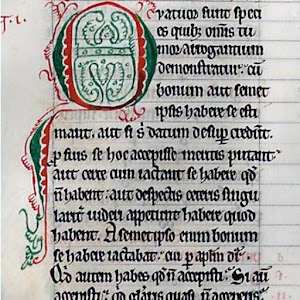 Quatuor sunt speci
es quib; om̄is tu
mor arrogantium
demonstratur. cū
bonum aut a semet
ipsis habere se esti
mant. aut si s datum desup̱ credunt.
p̱ suis se hoc accepisse meritis putant.
aut certe cum iactant se habere qd̄
n̄ habent. aut despectis ceteris singu
lariť videri appetunt habere quod
habent. A semetipso enim bonum
se habere iactabat. cui p̱ apłm dr̄.
Qd̄ autem habes qd̄ n̄ accepisti. Si aū
accepisti. qd̄ głaris quasi n̄ acceperis